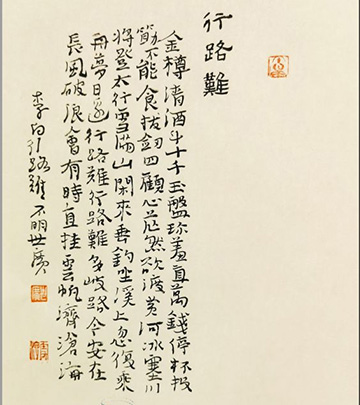 行路難
金樽清酒斗十千玉盤珍羞直萬錢停杯投
筯不能食拔劍四顧心茫然欲渡黃河冰塞川
將登太行雪滿山閑來垂釣坐溪上忽復乘
舟夢日邊行路難行路難多歧路今安在
長風破浪會有時直挂雲帆濟滄海
李白行路難